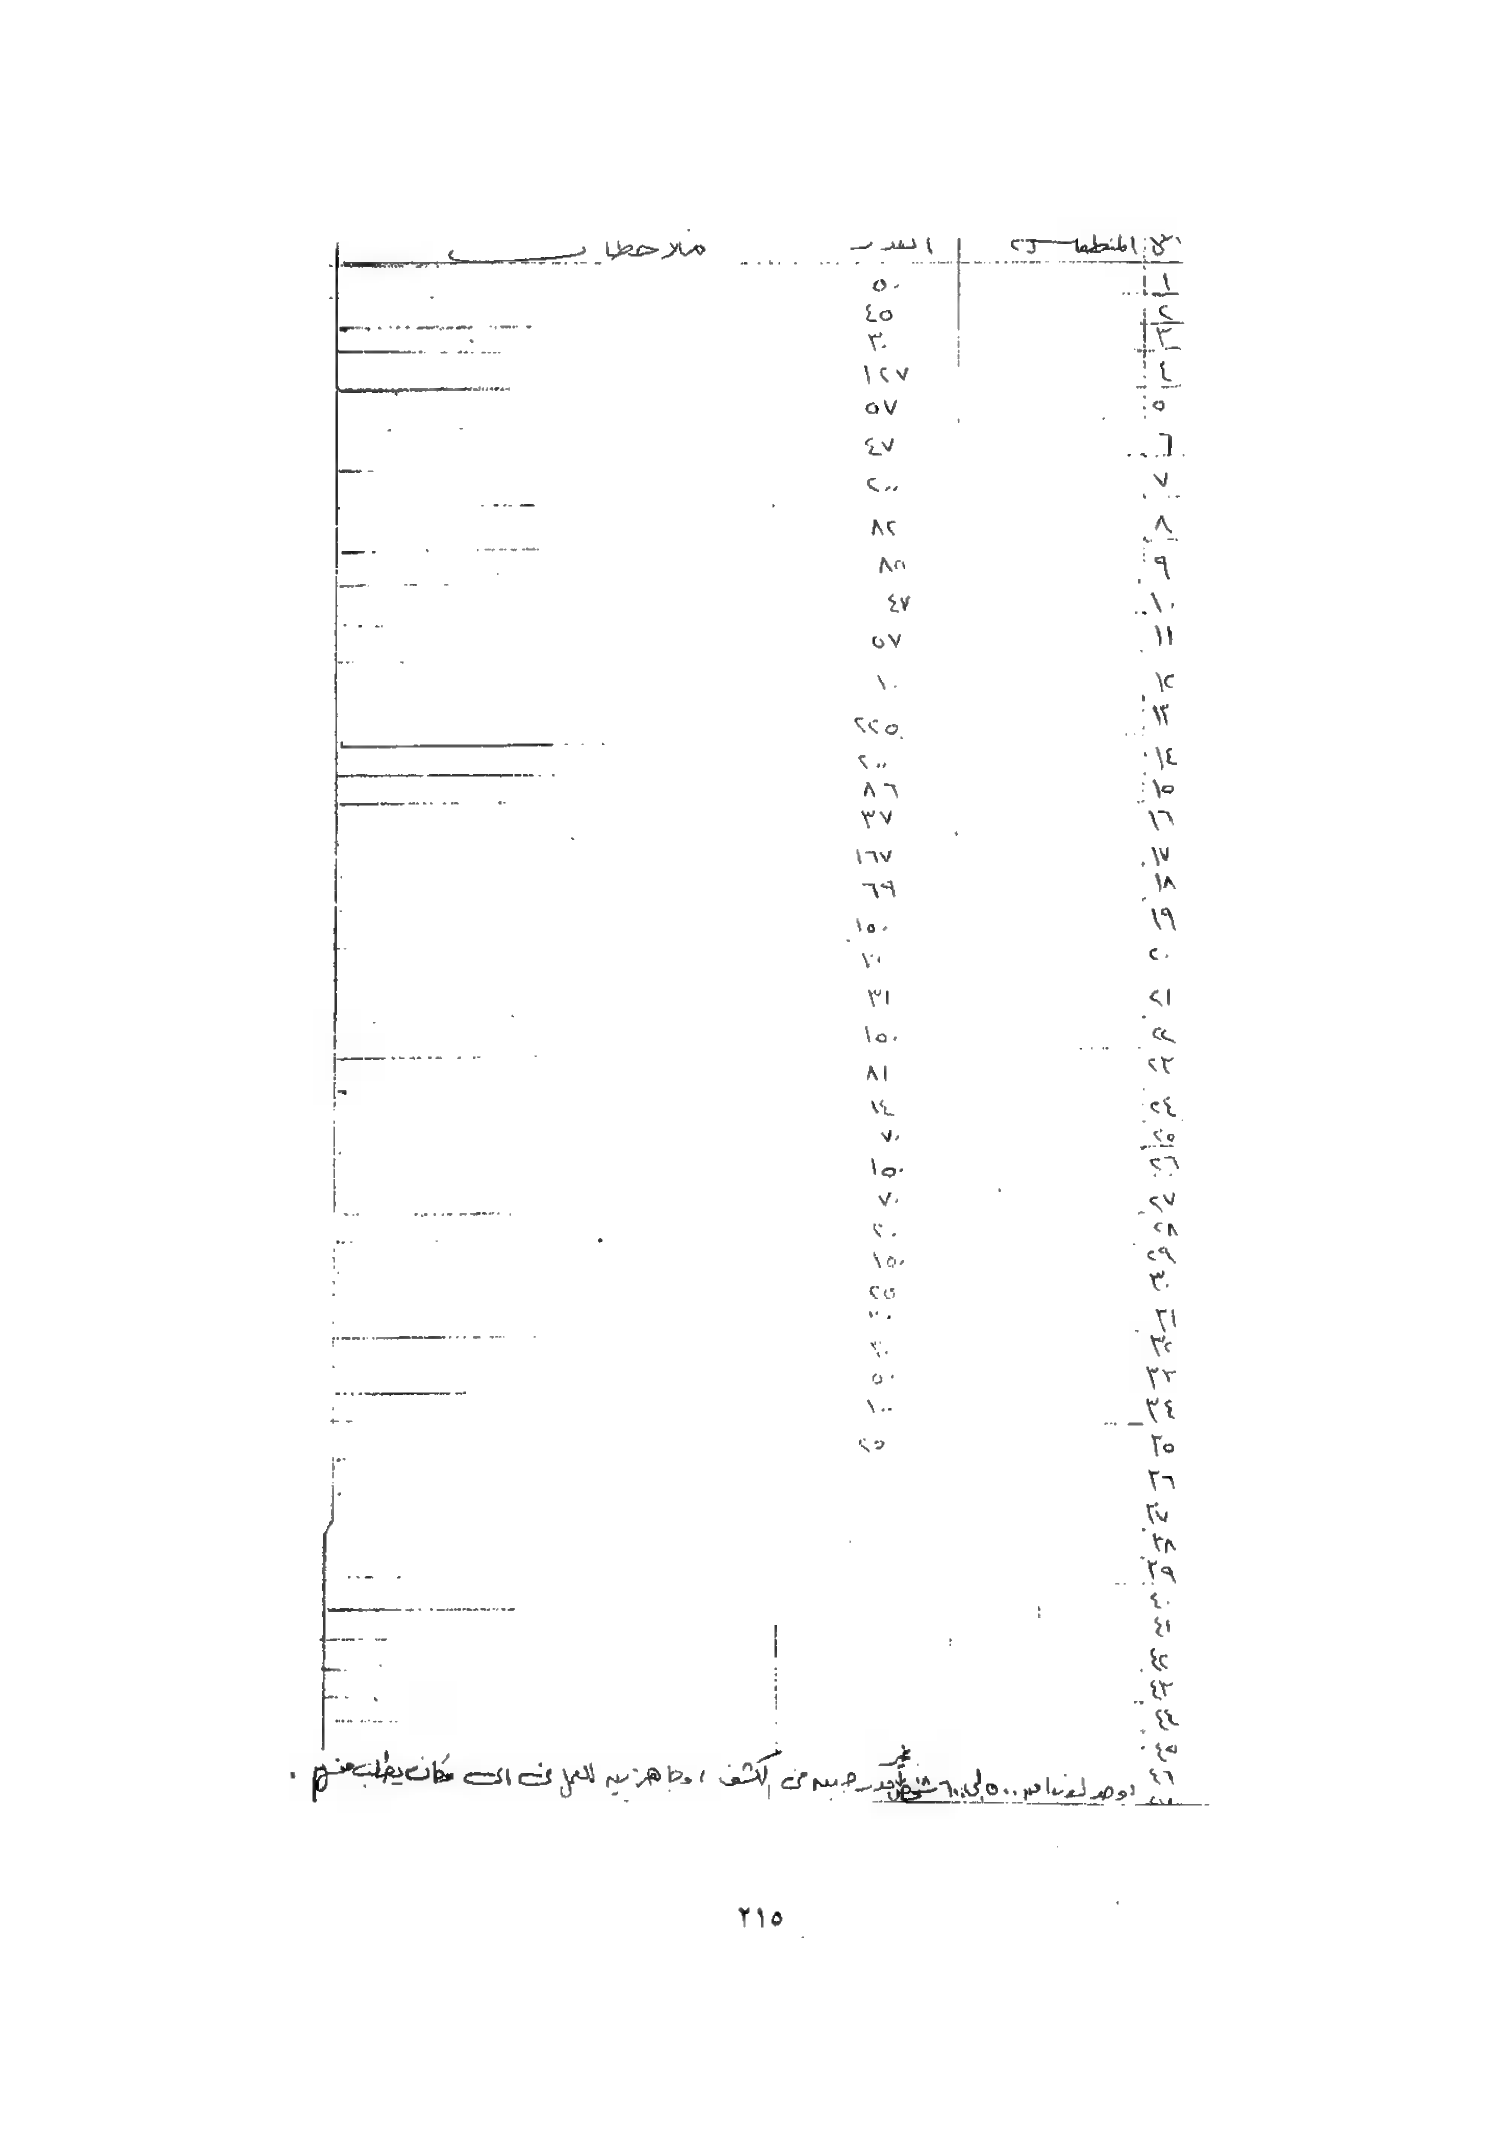 المنطقة العدد ملاحظات
١ ٥٠
٢ ٤٥
٣ ٣٠
٤ ١٢٧
٥ ٥٧
٦ ٤٧
٧ ٢٠٠
٨ ٨٢
٩ ٨٦
١٠ ٤٧
١١ ٥٧
١٢ ١٠
١٣ ٢٢٥
١٤ ٢٠٠
١٥ ٨٦
١٦ ٣٧
١٧ ١٦٧
١٨ ٦٩
١٩ ١٥٠
٢٠ ١٠٠
٢١ ٣١
٢٢ ١٥٠
٢٣ ٨١
٢٤ ١٤
٢٥ ٧٠
٢٦ ١٥٠
٢٧ ٧٠
٢٨ ٢٠
٢٩ ١٥٠
٣٠ ٢٥
٣١
٣٢
٣٣ ٥٠
٣٤ ١٠٠
٣٥ ٢٥
٣٦
٣٧
٣٨
٣٩
٤٠
٤١
٤٢
٤٣
٤٤
٤٥
٤٦
٤٧
٥٠٠ الى ٦٠٠ شخص غير في الكشف وجاهزين للعمل في اى مكان يطلب منهم .
٢١٥